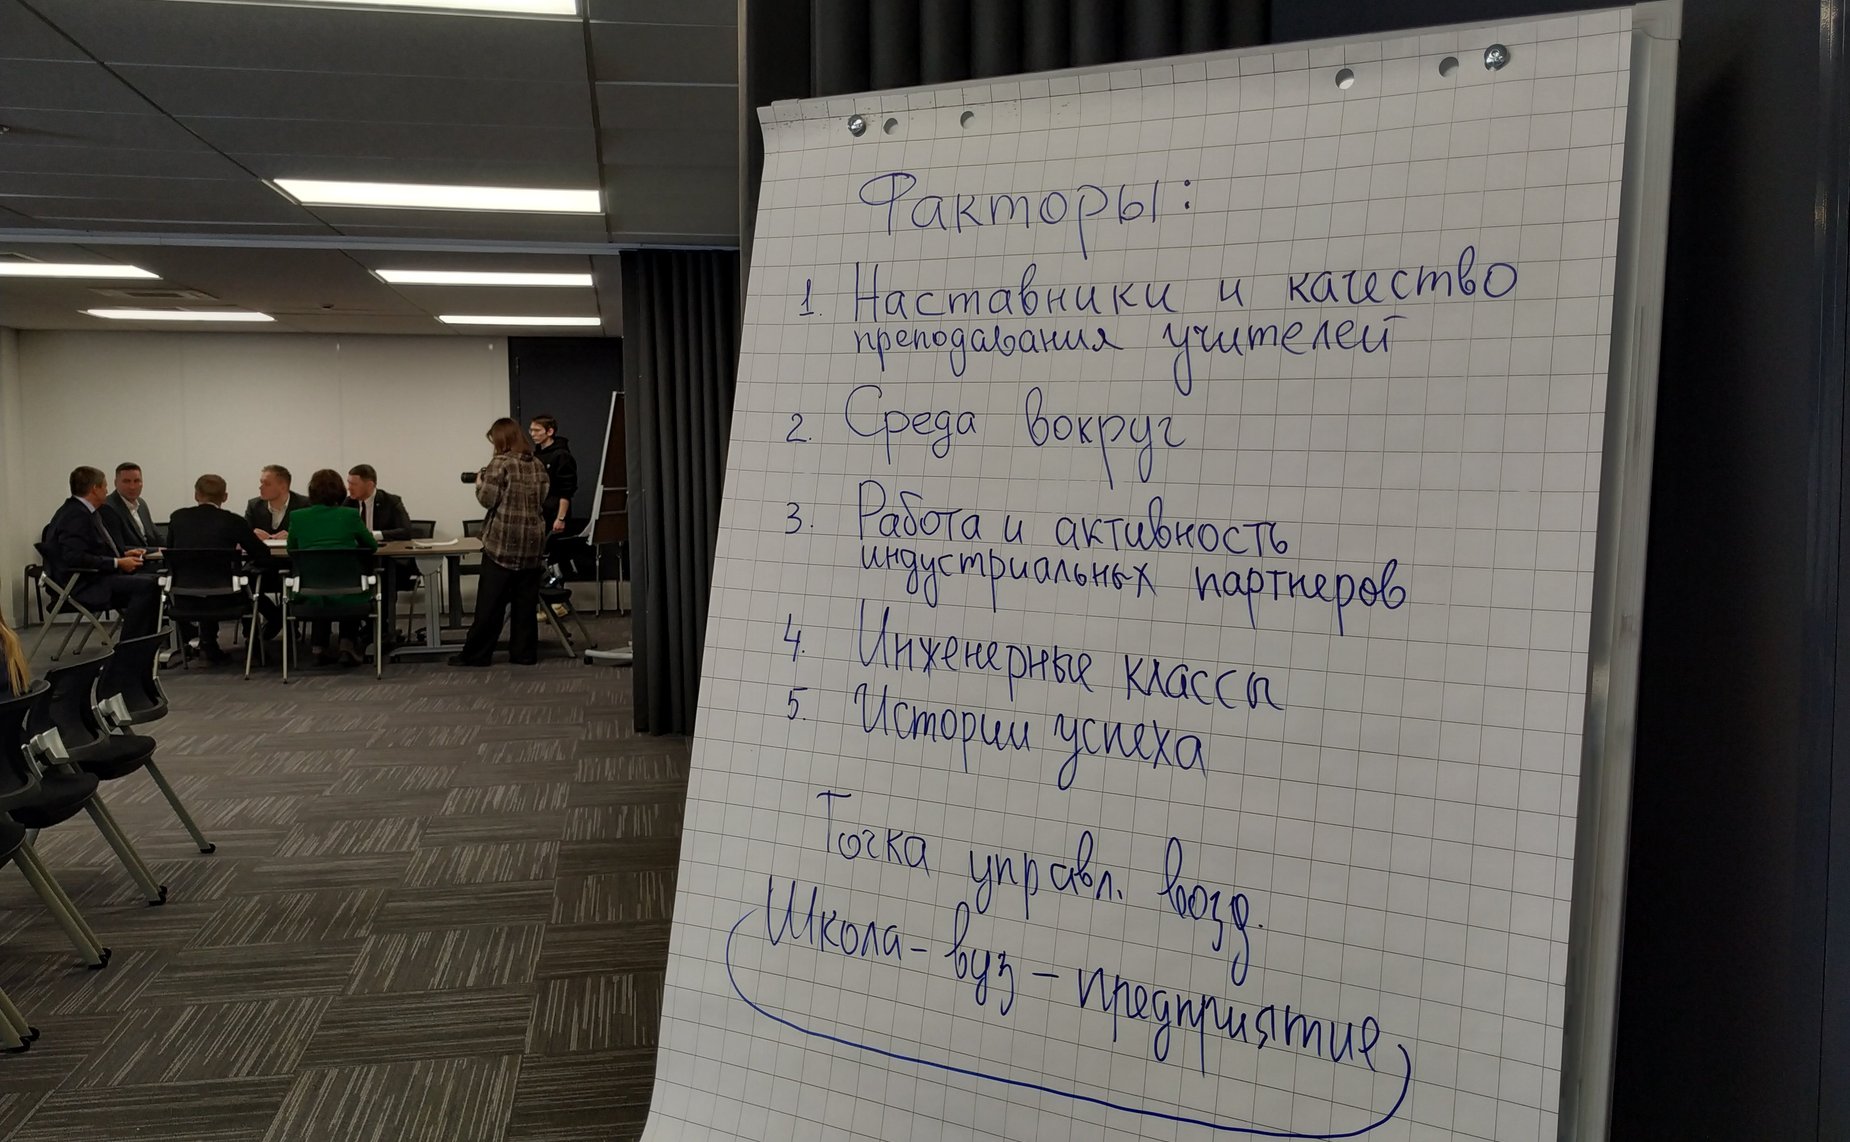 Факторы:
1. Наставники и качество
преподавания учителей
2. Среда вокруг
3. Работа и активность
индустриальных партнеров
4. Инженерные классы
5. Истории успеха
Точка управл. возд.
Школа - вуз - предприятие